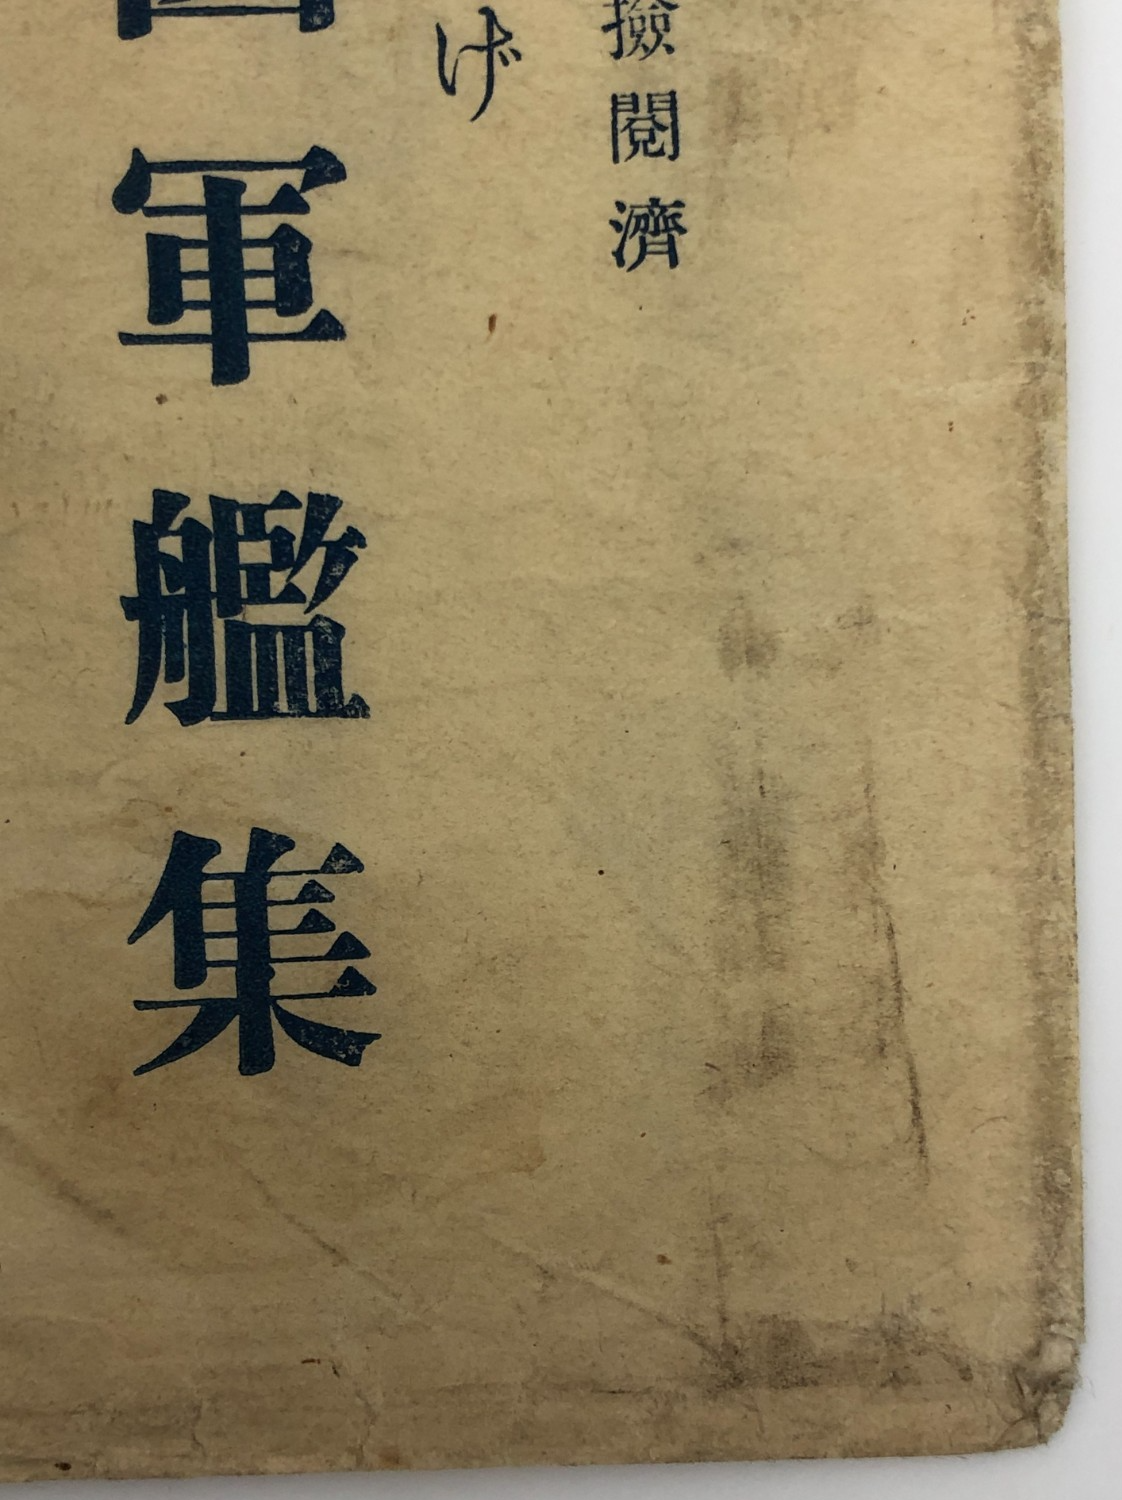 撿閱濟
げ
軍艦集